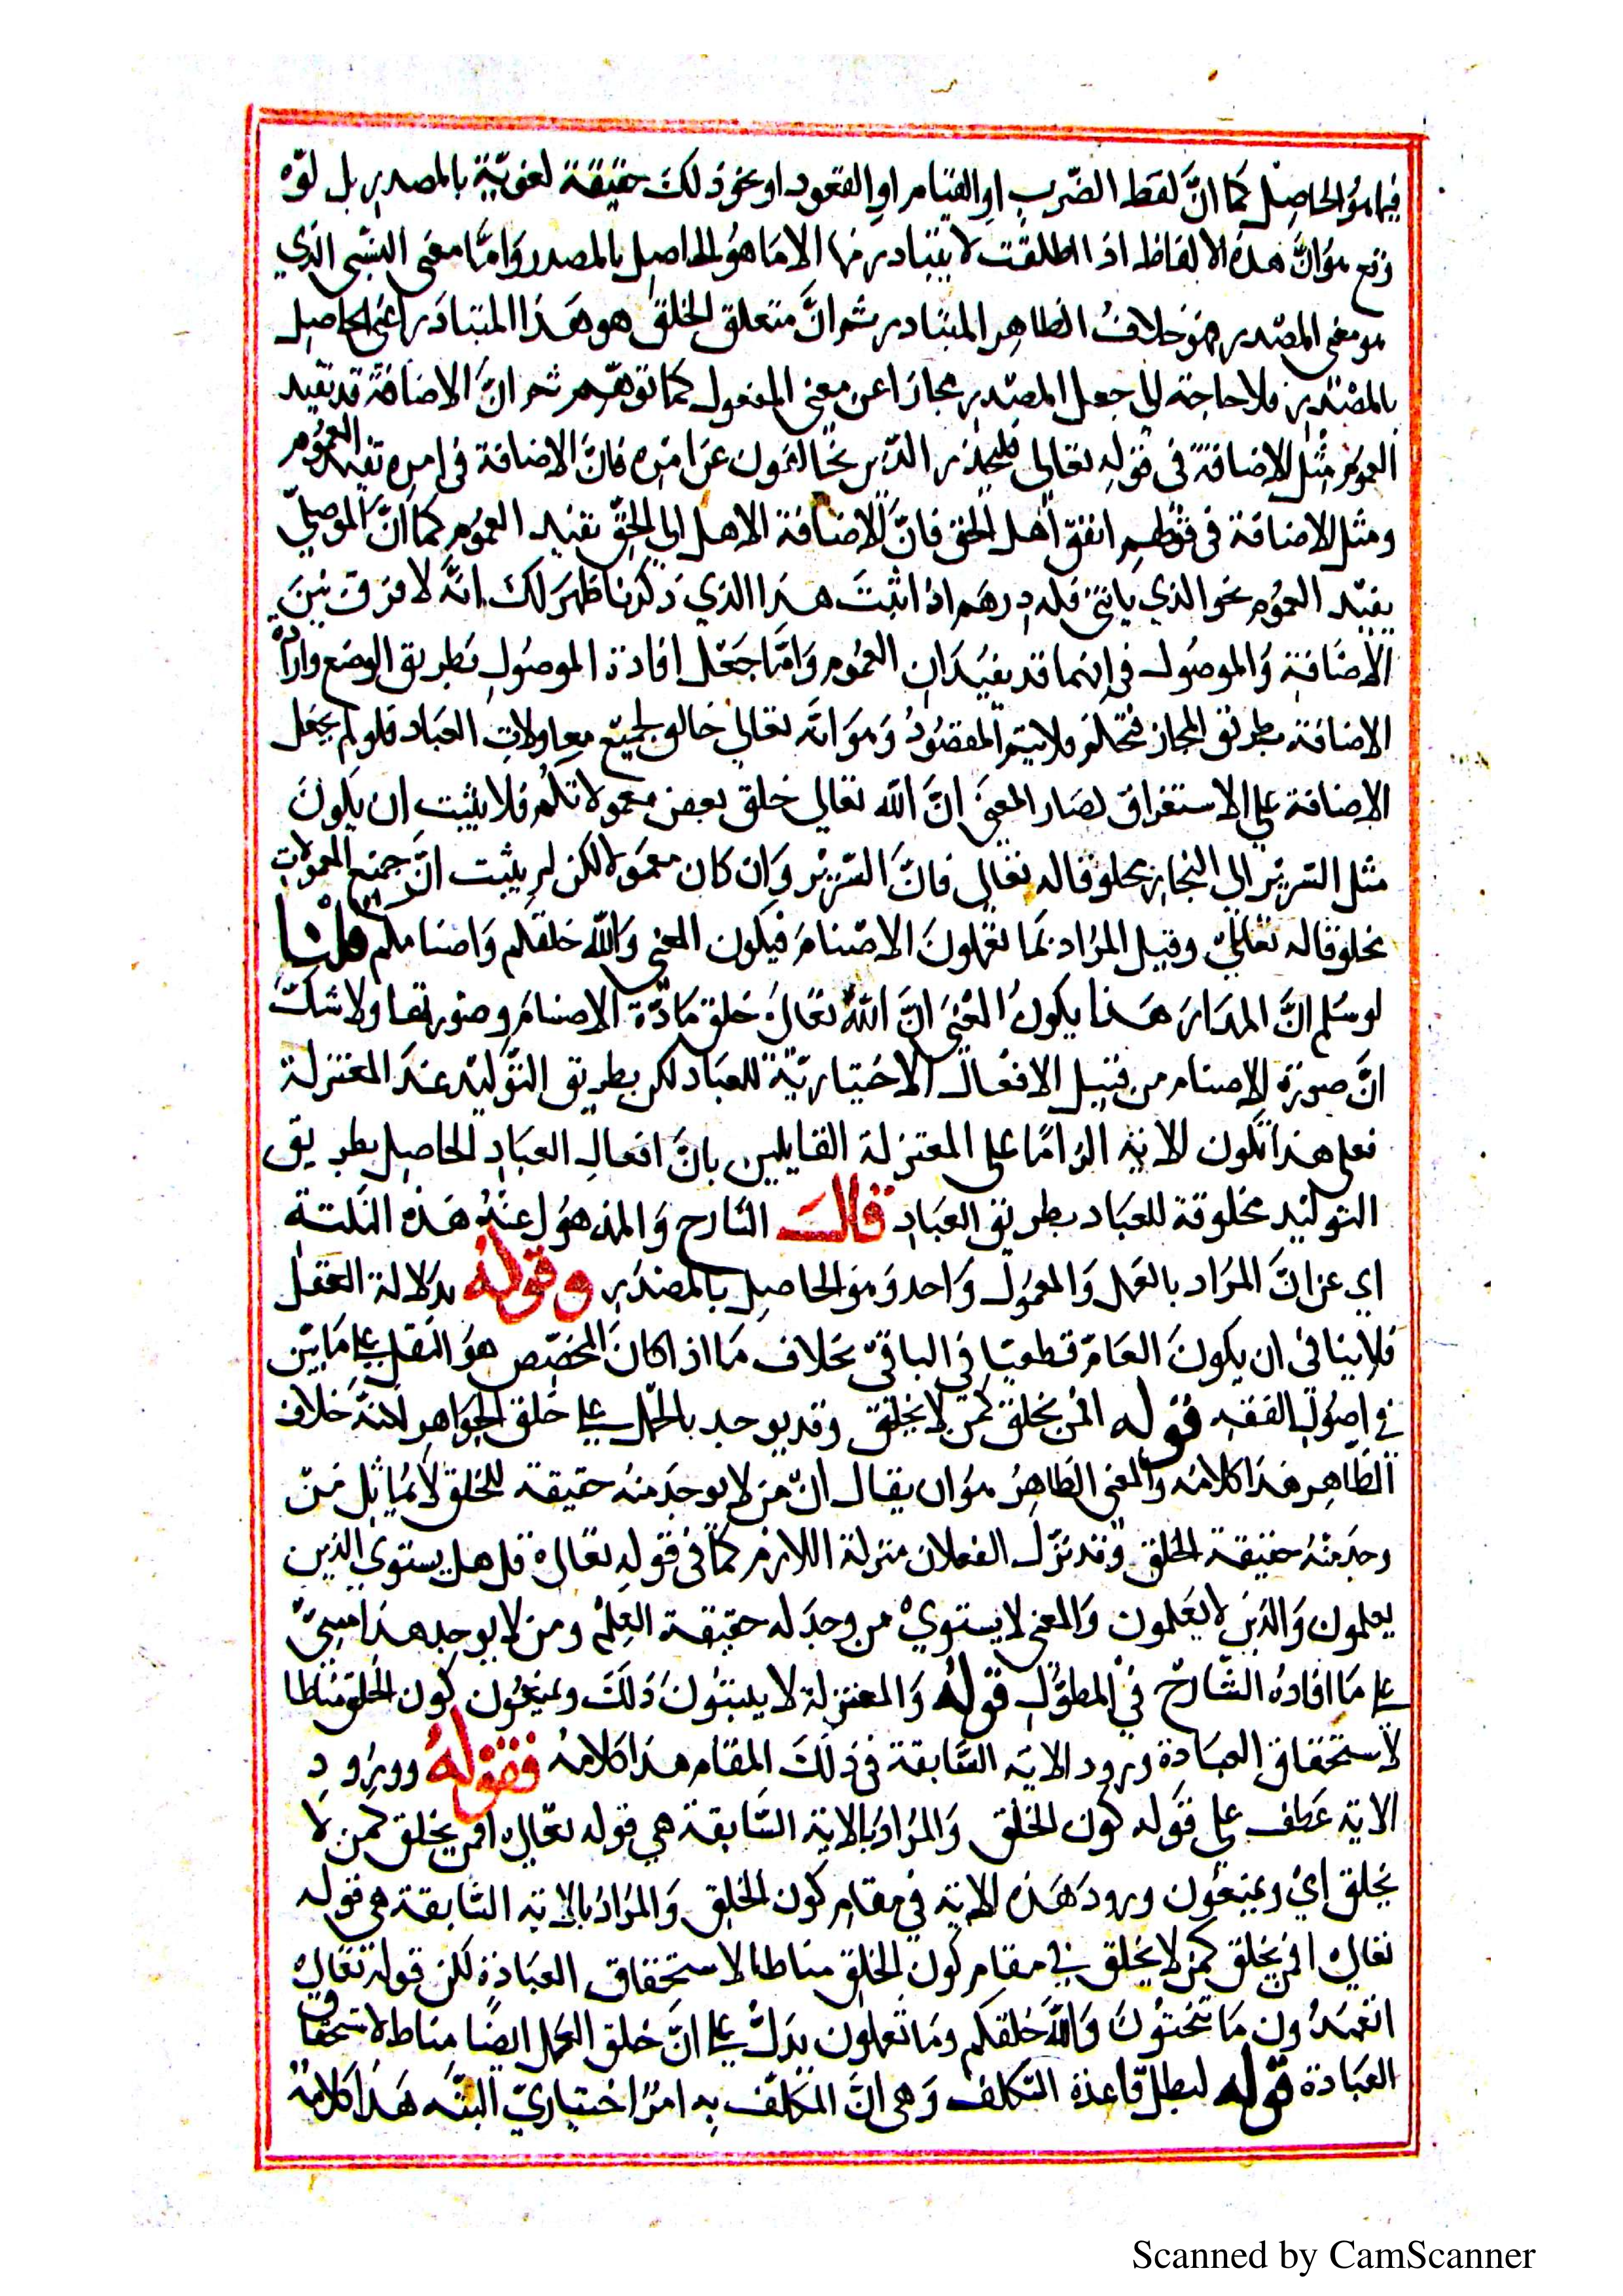 فيما هو الحاصل كما انَّ لفظ الضّرب او القيام او القعود او نحو ذلك حقيقة لغويّة بالمصدر بل لوّه
وقع هو انَّ هذه الالفاظ اذا اطلقت لا يتبادر منها الا ما هو الحاصل بالمصدر وَامَّا معنى النسبى الذي
هو معنى المصدر فهو خلافُ الظاهر المتبادر ثم انَّ متعلق الخلق هو هَذا المتبادَر اعنى الحاصل
بالمصْدَر فلا حاجة الى جعل المصدر مجازا عن معنى المفعول كما توهّم ثم انَّ الاضَافَة قد تفيد
العموم مثل الاضافة فى قوله تعالى فليحذر الذين يخالفون عن امره فانَّ الاضافة فى امره تفيد العُموم
ومثل الاضافة فى قولهم اتفق اهل الحق فانَّ الاضافة الاهل الى الحقّ تفيد العموم كما انَّ الموصول
يفيد العموم نحو الذي ياتنى فله درهم اذا اثبتَ هذا الذي ذكرنا ظهرَ لك انَّه لا فرق بَيْنَ
الاضَافة وَالموصُول فى انهما قد يفيدَان العمُوم وَامَّا جَعْل افادة الموصُول بطريق الوضع وارادة
الاضافة بطريق المجاز فتحكّم فلا يتم المقصُودُ وَهوَ انَّه تعالى خالق لجميع معاولات العبَاد فلو لم يجعل
الاضافة على الاستغراق لصَار المعنىَ انَّ الله تعالى خلق بعض معمولاتكُم فلا يثبت ان يكونَ
مثل السّرير الى النجار مخلوقا له تعالى فانَّ السَّرير وَان كان معمَولا لكن لم يثبت انَّ جميع المعمولات
مخلوقا له تعالىَ وقيل المرَاد بمَا تعملونَ الاصْنامَ فيكون المعنى وَاللّه خلقكم وَاصنامكم قلنا
لو سُلم انَّ المرَاد هَذا يكونُ المعْنىَ انَّ اللهُ تعَالىَ خلق مَادّة الاصنامَ وصُورتها ولا شكّ
انَّ صورَة الاصنام من قبيل الافعَال الاختياريّة للعبَاد لكن بطريق التّوليد عندَ المعتزلة
فعلى هذا تكون الاية الزامًا على المعتزلة القايلين بانَّ افعال العبَاد الحاصل بطريق
التوليد مخلوقة للعبَاد بطريق العبَاد قال الشارح وَالمذهول عنه هَذه النكتة
اي عن انَّ المرَاد بالعَمل وَالمعمول وَاحد وَهوَ الحاصل بالمصْدَر وقوله بدَلالة العَقل
فلا ينافى ان يكونَ العَامّ قطعيّا فى الباقى بخلاف مَا اذا كانَ المخصّص هوَ النقل على مَا بيّن
فى اصُول الفقه قوله افمن يخلق كمن لا يخلق وقد يوجد بالحمل على خلق الجوَاهر لكنّه خلاف
الظّاهر هذا كلامه وَالمعنى الظاهِرُ هوَ ان يقال انّ من لا يوجَد منهُ حقيقة للخلق لا يُماثل مَنْ
وجدَ منْهُ حقيقة الخلق وَقد نزّل الفعلان منزلة اللازم كما فى قوله تعَالى قل هل يستوى الذين
يعلمون وَالذين لا يعَلمون وَالمعنى لا يستوي من وجدَ له حقيقة العِلم ومن لا يوجد هذا مبنىّ
على مَا افادهُ الشّارح فى المطوّل قولهُ وَالمعتزلة لا يثبتُونَ ذلكَ ويمنعُون كون الخلق مناطا
لاستحقاق العبَادة ورود الاية السَّابقة فى ذلكَ المقام هذا كلامهُ فقولهُ وورُود
الاية عَطف على قوله كون الخلق وَالمرَادُ بالاية السَّابقة هي قوله تعَالى افمن يخلق كمن لا
يخلق اىْ ويمنعُون ورودَ هَذه الاية فى مقام كون الخلق وَالمرَادُ بالاية السَّابقة هى قوله
تعَالى افمن يخلق كمن لا يخلق فى مقام كون الخلق مناطا لاستحقاق العبَادة لكن قوله تعَالى
اتعبدُون مَا تنحتُونَ وَاللّهُ خلقكم ومَا تعملون يدلّ على انَّ خلق العمل ايضًا مناط لاستحقاق
العبَادة قوله لبطل قاعدة التكلف وَهى انَّ المكلّف به امرٌ اختيارىّ البتّه هَذا كلامهُ
Scanned by CamScanner